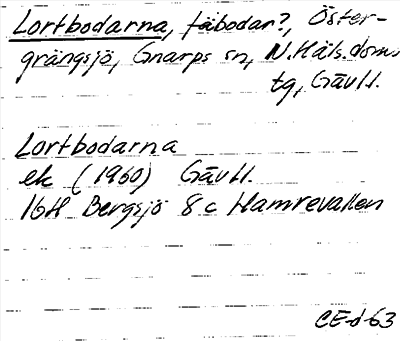 Lortbodarna, fäbodar?, Öster-
grängsjö, Gnarps sn, N.Häls.doms.
tg, Gävl l.
Lortbodarna
ek (1960) Gävl l.
16H Bergsjö 8c Hamrevallen
CE-d-63